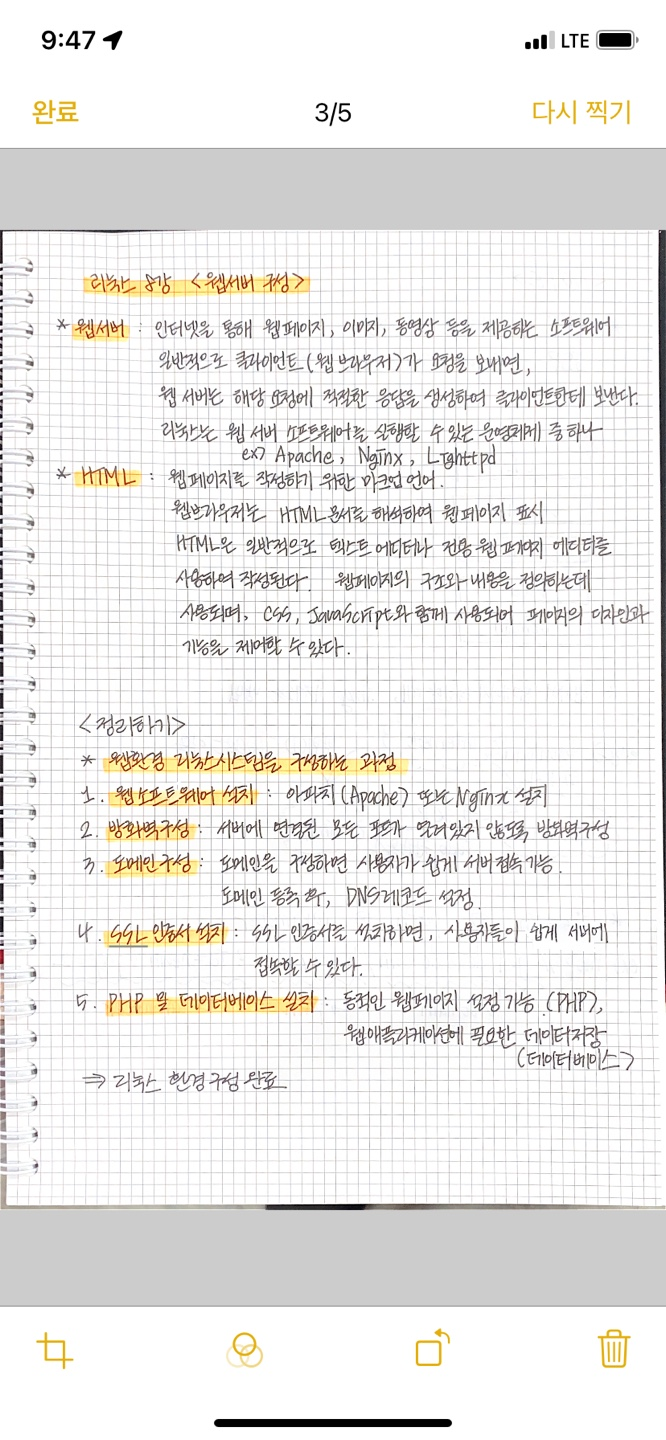 9:47
LTE
완료
3/5
다시 찍기
리눅스 8강 <웹서버 구성>
* 웹서버 : 인터넷을 통해 웹페이지, 이미지, 동영상 등을 제공하는 소프트웨어
일반적으로 클라이언트(웹브라우저)가 요청을 보내면,
웹 서버는 해당 요청에 적절한 응답을 생성하여 클라이언트한테 보낸다.
리눅스는 웹 서버 소프트웨어를 실행할 수 있는 운영체제 중 하나
ex) Apache, Nginx, Lighttpd
* HTML : 웹페이지를 작성하기 위한 마크업 언어.
웹브라우저는 HTML문서를 해석하여 웹페이지 표시
HTML은 일반적으로 텍스트 에디터나 전용 웹페이지 에디터를
사용하여 작성된다. 웹페이지의 구조와 내용을 정의하는데
사용되며, CSS, JavaScript와 함께 사용되어 페이지의 디자인과
기능을 제어할 수 있다.
<정리하기>
* 웹환경 리눅스시스템을 구성하는 과정
1. 웹소프트웨어 설치 : 아파치(Apache) 또는 Nginx 설치
2. 방화벽구성 : 서버에 연결된 모든 포트가 열려있지 않도록 방화벽구성
3. 도메인구성 : 도메인을 구성하면 사용자가 쉽게 서버접속가능.
도메인 등록 후, DNS레코드 설정.
4. SSL 인증서 설치 : SSL 인증서를 설치하면, 사용자들이 쉽게 서버에
접속할 수 있다.
5. PHP 및 데이터베이스 설치 : 동적인 웹페이지 설정 기능.(PHP),
웹애플리케이션에 필요한 데이터저장
(데이터베이스)
⇒ 리눅스 환경구성 완료